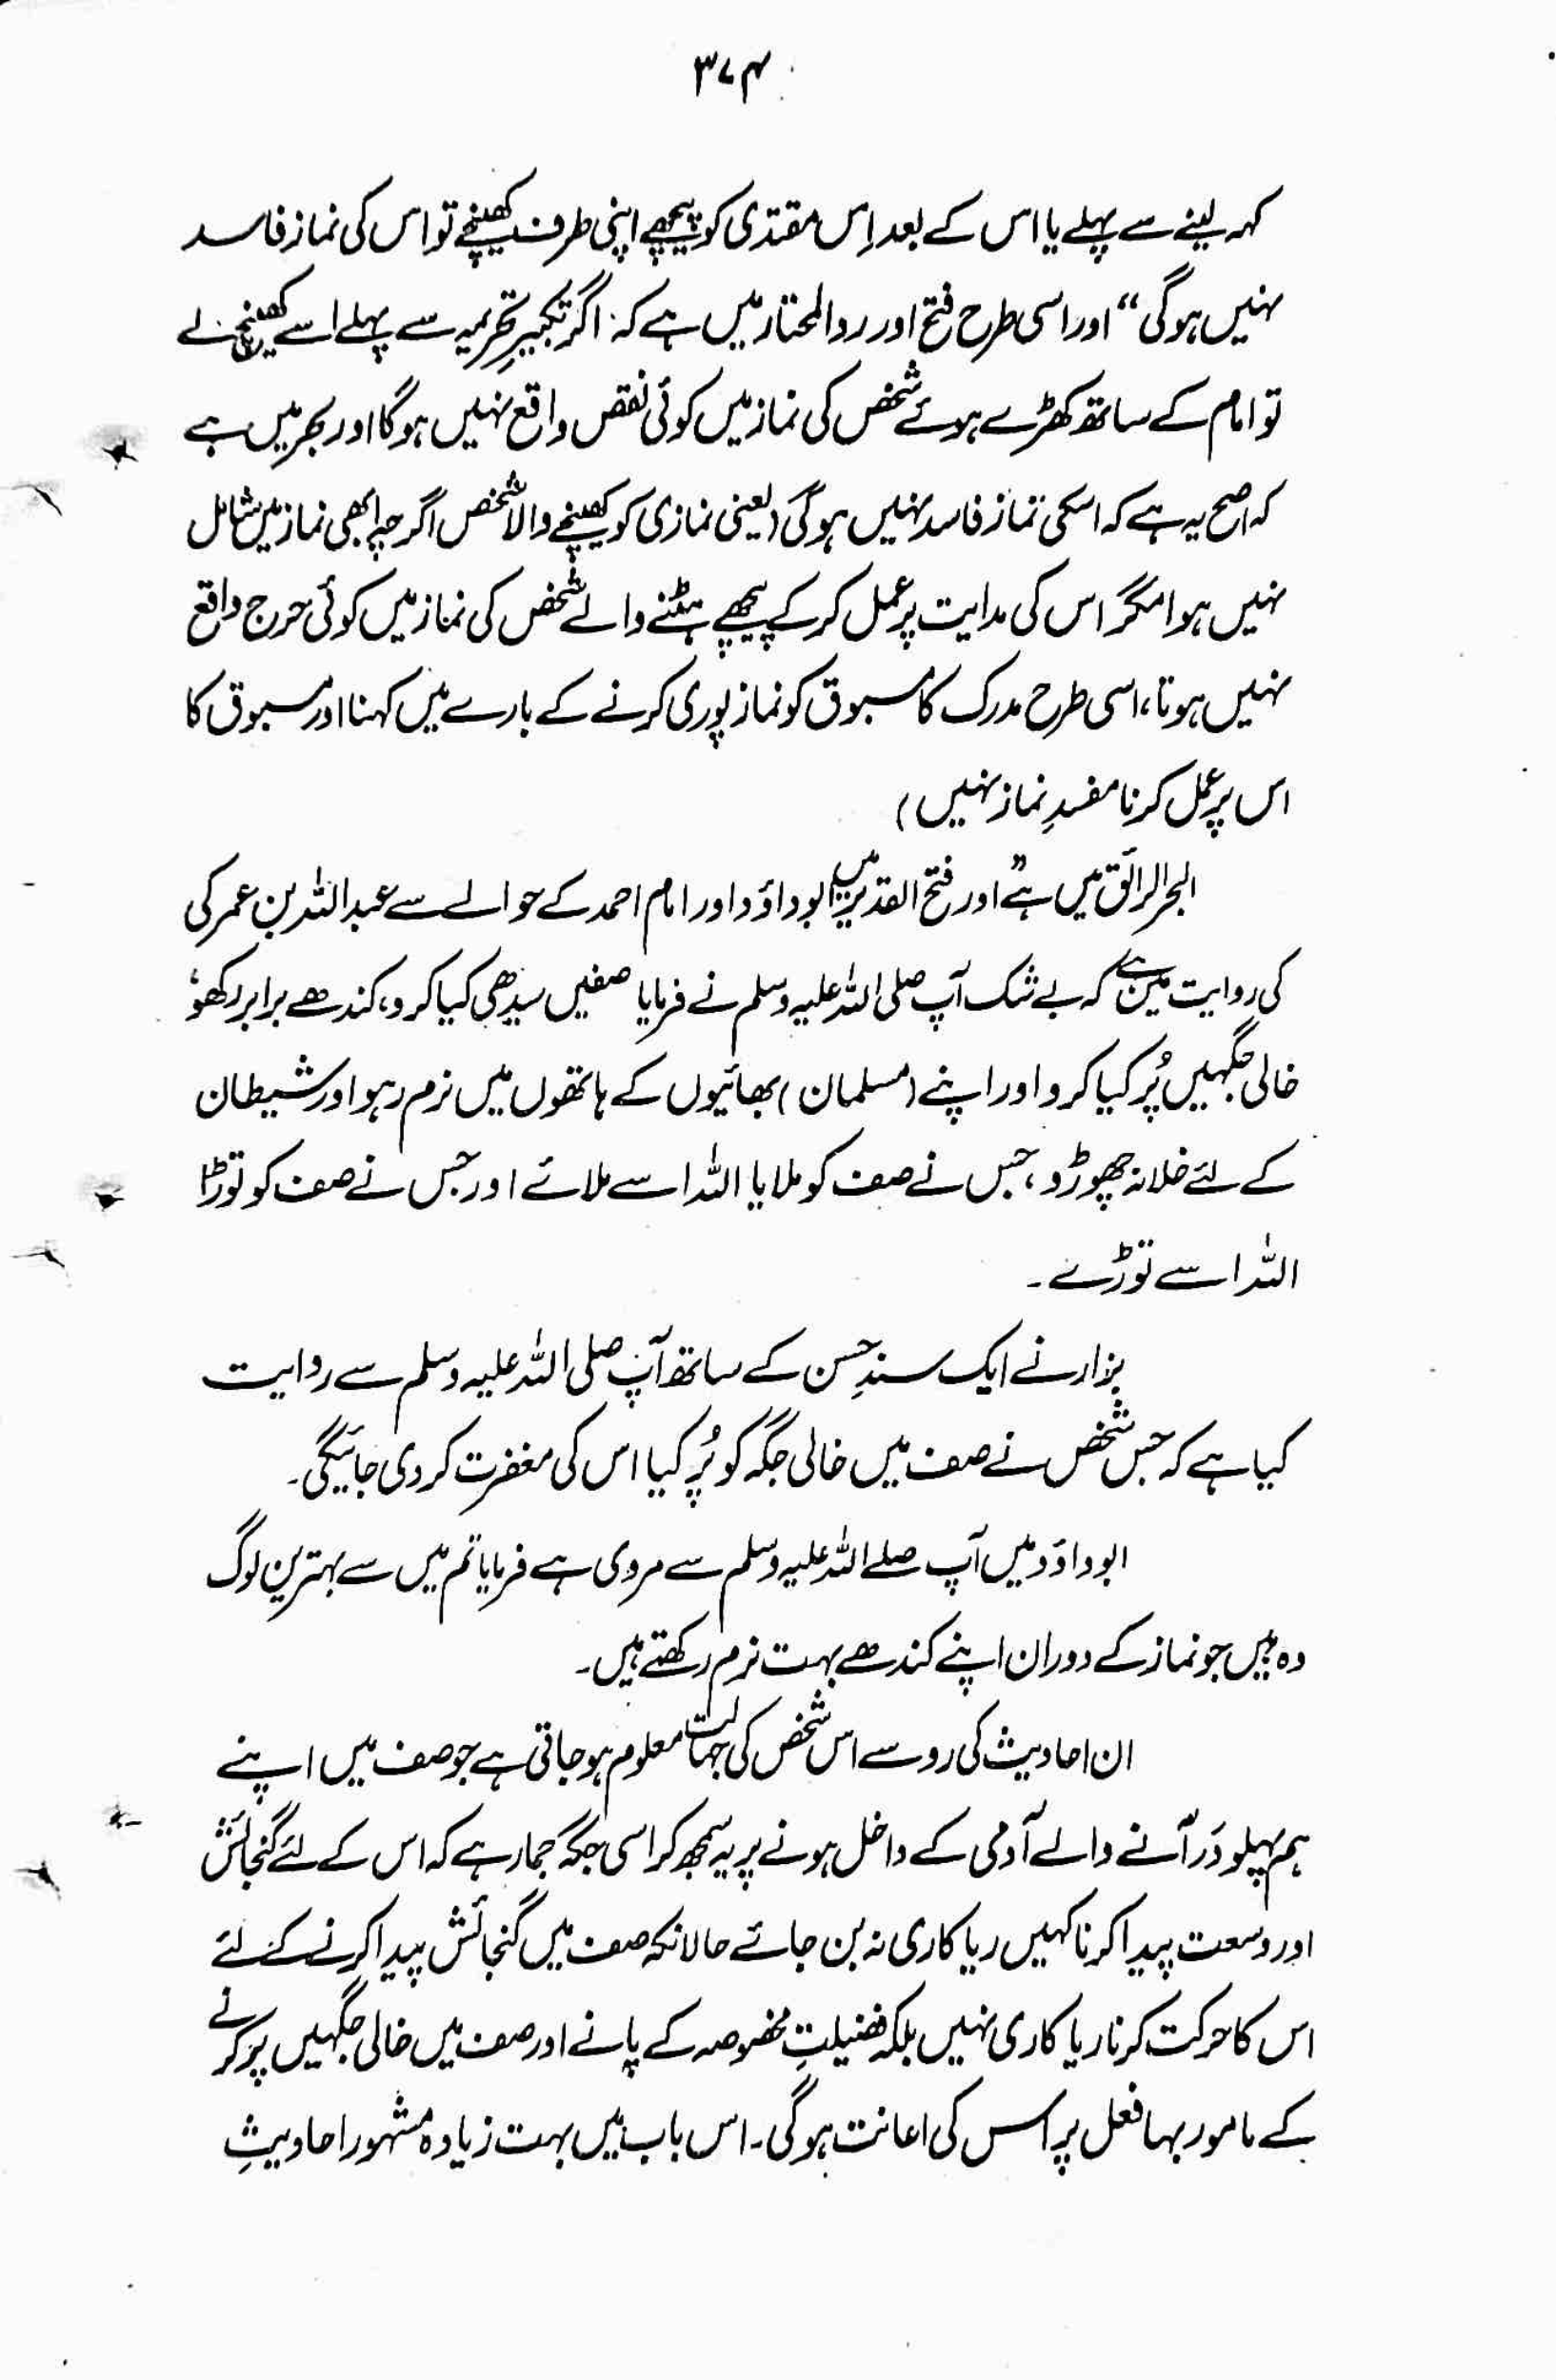 ۳۷۴
کہہ لینے سے پہلے یا اس کے بعد اِس مقتدی کو پیچھے اپنی طرف کھینچے تو اس کی نماز فاسد
نہیں ہوگی“ اور اسی طرح فتح اور ردالمحتار میں ہے کہ: اگر تکبیرِ تحریمہ سے پہلے اسے کھینچ لے
تو امام کے ساتھ کھڑے ہوئے شخص کی نماز میں کوئی نقص واقع نہیں ہوگا اور بحر میں ہے
کہ اصح یہ ہے کہ اسکی نماز فاسد نہیں ہوگی (یعنی نمازی کو کھینچنے والا شخص اگرچہ ابھی نماز میں شامل
نہیں ہوا مگر اس کی ہدایت پر عمل کر کے پیچھے ہٹنے والے شخص کی نماز میں کوئی حرج واقع
نہیں ہوتا، اسی طرح مدرک کا مسبوق کو نماز پوری کرنے کے بارے میں کہنا اور مسبوق کا
اس پر عمل کرنا مفسدِ نماز نہیں)
البحرالرائق میں ہے” اور فتح القدیر میں ابوداؤد اور امام احمد کے حوالے سے عبداللہ بن عمر کی
کی روایت میں ہے کہ بے شک آپ صلی اللہ علیہ وسلم نے فرمایا صفیں سیدھی کیا کرو، کندھے برابر رکھو،
خالی جگہیں پُر کیا کرو اور اپنے (مسلمان) بھائیوں کے ہاتھوں میں نرم رہو اور شیطان
کے لئے خلا نہ چھوڑو، جس نے صف کو ملایا اللہ اسے ملائے اور جس نے صف کو توڑا
اللہ اسے توڑے۔
بزار نے ایک سندِ حسن کے ساتھ آپ صلی اللہ علیہ وسلم سے روایت
کیا ہے کہ جس شخص نے صف میں خالی جگہ کو پُر کیا اس کی مغفرت کر دی جائیگی۔
ابوداؤد میں آپ صلے اللہ علیہ وسلم سے مروی ہے فرمایا تم میں سے بہترین لوگ
وہ ہیں جو نماز کے دوران اپنے کندھے بہت نرم رکھتے ہیں۔
ان احادیث کی رو سے اس شخص کی جہالت معلوم ہو جاتی ہے جو صف میں اپنے
ہم پہلو دَر آنے والے آدمی کے داخل ہونے پر یہ سمجھ کر اسی جگہ جما رہے کہ اس کے لئے گنجائش
اور وسعت پیدا کرنا کہیں ریاکاری نہ بن جائے حالانکہ صف میں گنجائش پیدا کرنے کے لئے
اس کا حرکت کرنا ریاکاری نہیں بلکہ فضیلتِ مخصوصہ کے پانے اور صف میں خالی جگہیں پر کرنے
کے مامور بہا فعل پر اس کی اعانت ہوگی۔ اس باب میں بہت زیادہ مشہور احادیثِ